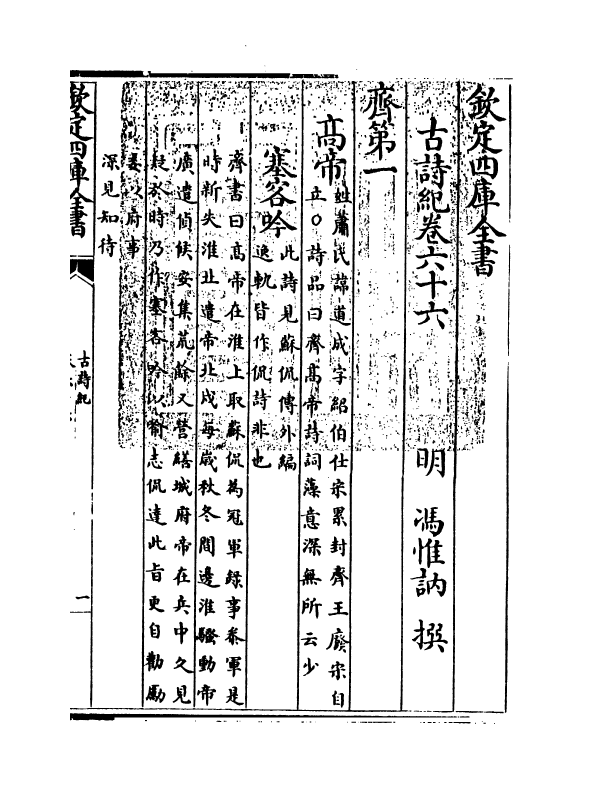 欽定四庫全書
古詩紀卷六十六　　明　馮惟訥　撰
齊第一
高帝
姓蕭氏諱道成字紹伯仕宋累封齊王廢宋自
立○詩品曰齊髙帝詩詞藻意深無所云少
塞客吟
此詩見蘇侃傳外編
逸軌皆作侃詩非也
齊書曰髙帝在淮上取蘇侃為冠軍錄事叅軍是
時新失淮北遣帝北戍每歲秋冬間邊淮騷動帝
廣遣偵候安集荒餘又營繕城府帝在兵中久見
疑於時乃作塞客吟以喻志侃達此旨更自勸勵
委以府事
深見知待
欽定四庫全書
古詩紀
一